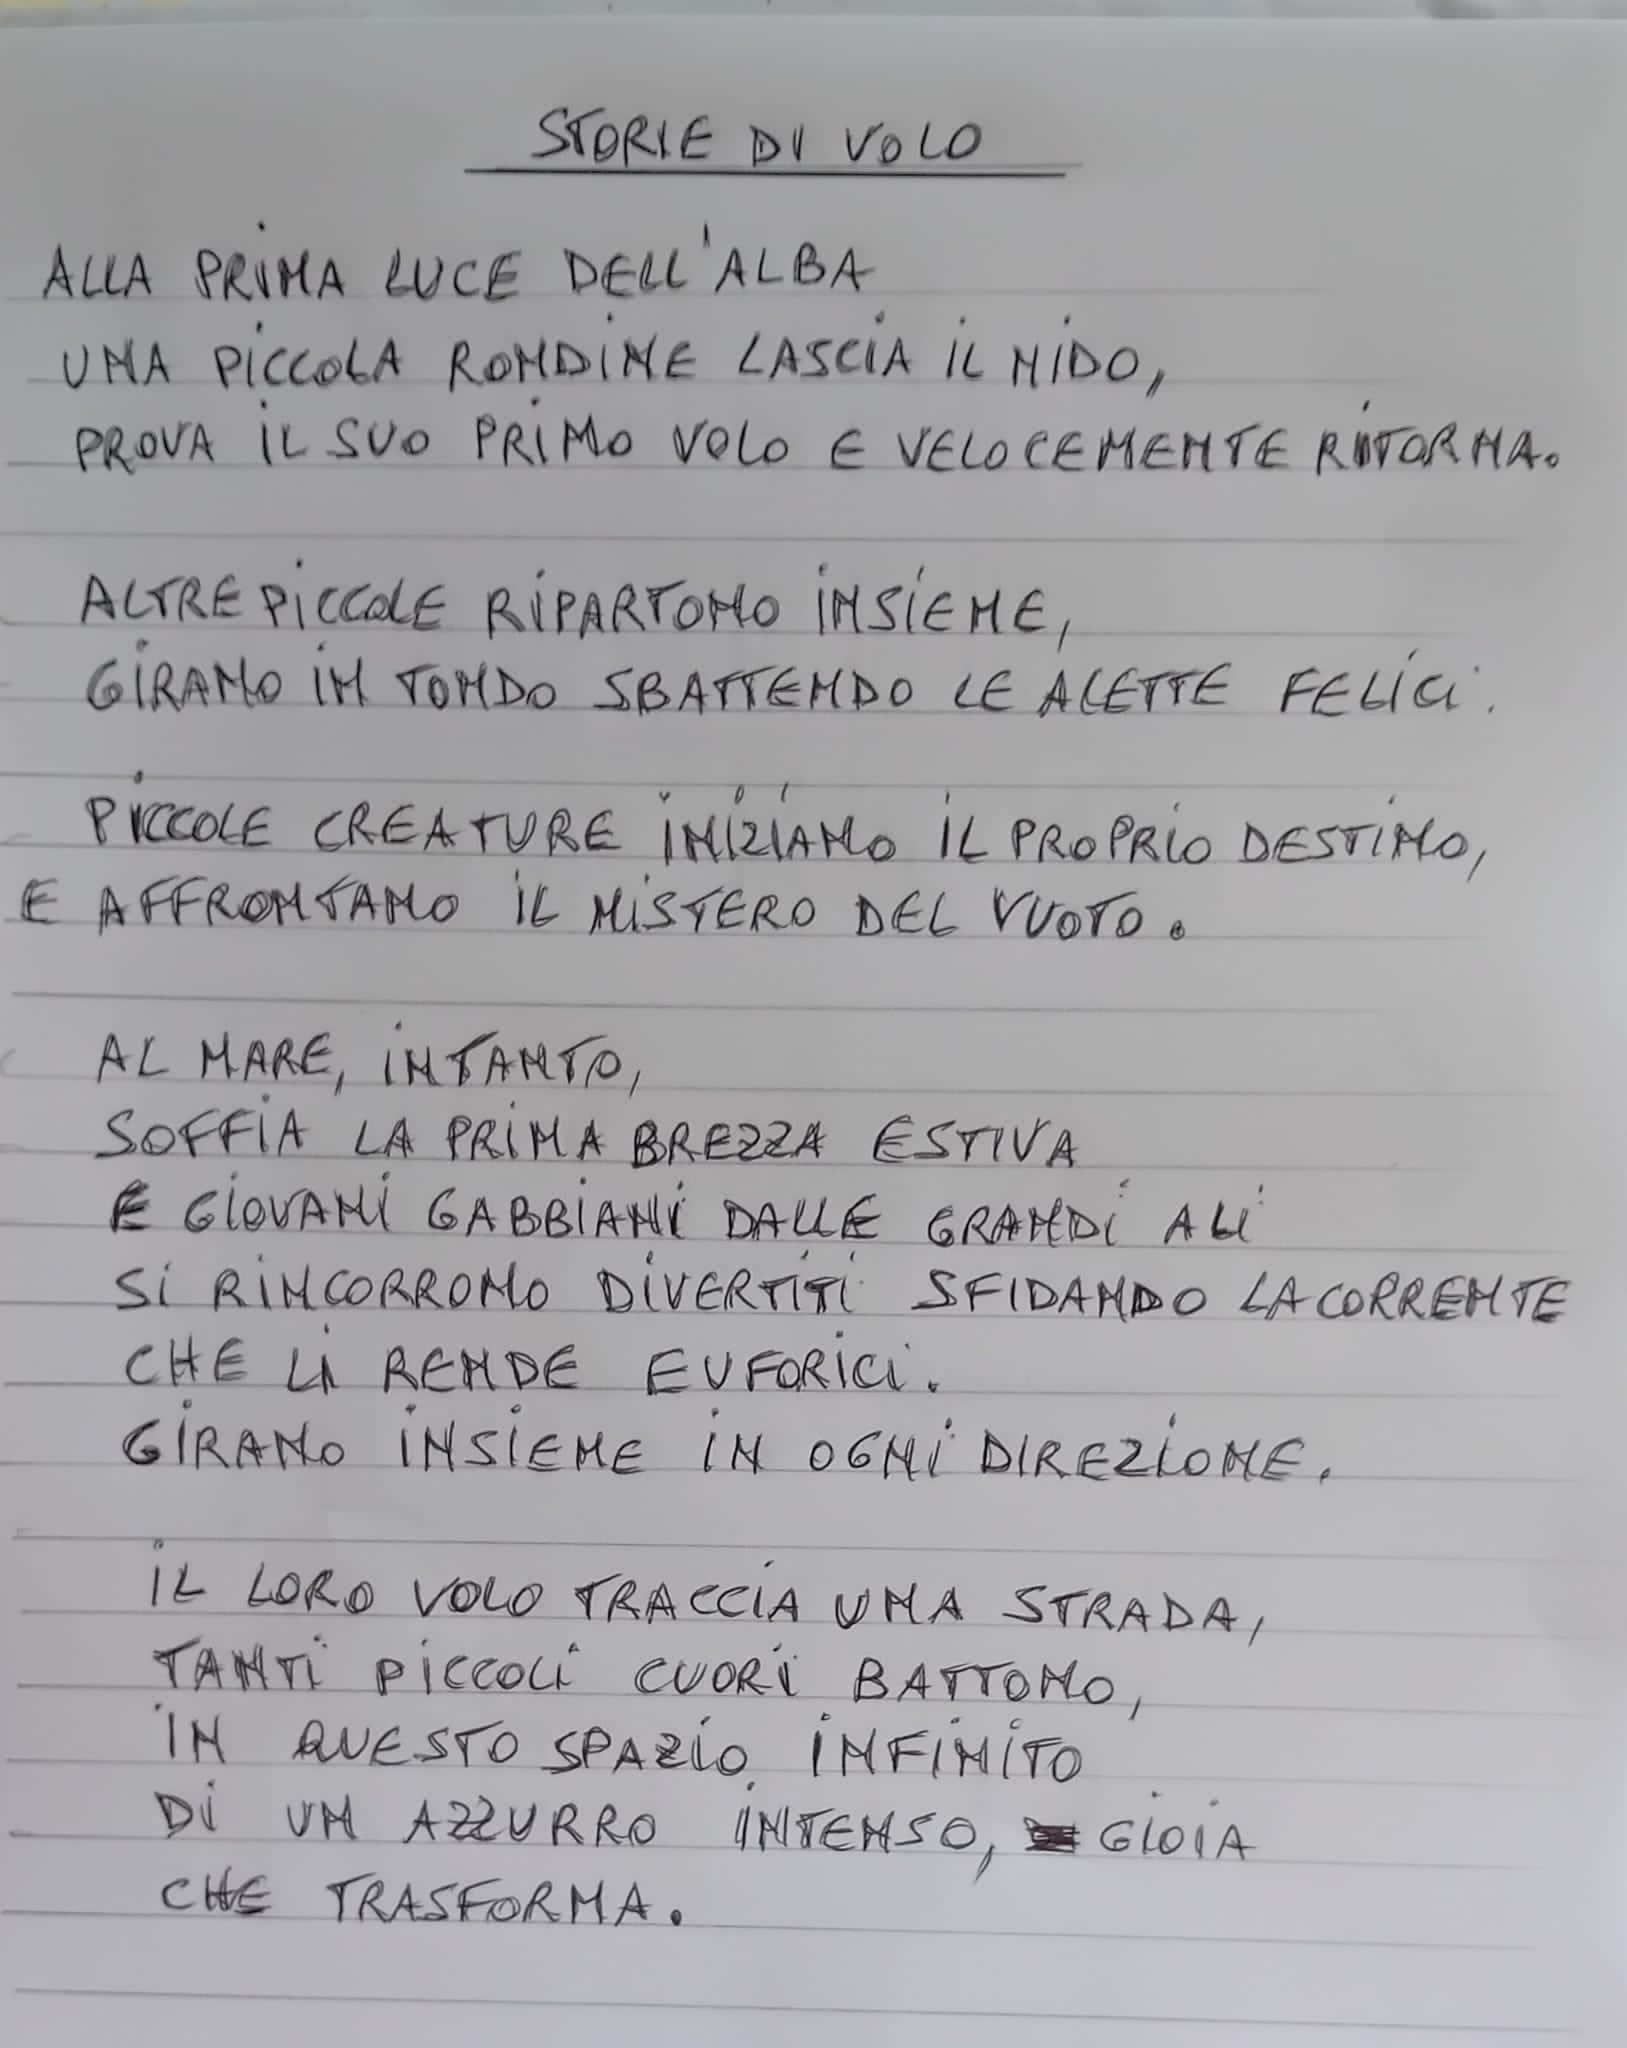 STORIE DI VOLO
ALLA PRIMA LUCE DELL'ALBA
UNA PICCOLA RONDINE LASCIA IL NIDO,
PROVA IL SUO PRIMO VOLO E VELOCEMENTE RITORNA.
ALTRE PICCOLE RIPARTONO INSIEME,
GIRANO IN TONDO SBATTENDO LE ALETTE FELICI.
PICCOLE CREATURE INIZIANO IL PROPRIO DESTINO,
E AFFRONTANO IL MISTERO DEL VUOTO.
AL MARE, INTANTO,
SOFFIA LA PRIMA BREZZA ESTIVA
E GIOVANI GABBIANI DALLE GRANDI ALI
SI RINCORRONO DIVERTITI SFIDANDO LA CORRENTE
CHE LI RENDE EUFORICI.
GIRANO INSIEME IN OGNI DIREZIONE.
IL LORO VOLO TRACCIA UNA STRADA,
TANTI PICCOLI CUORI BATTONO,
IN QUESTO SPAZIO INFINITO
DI UN AZZURRO INTENSO, GIOIA
CHE TRASFORMA.